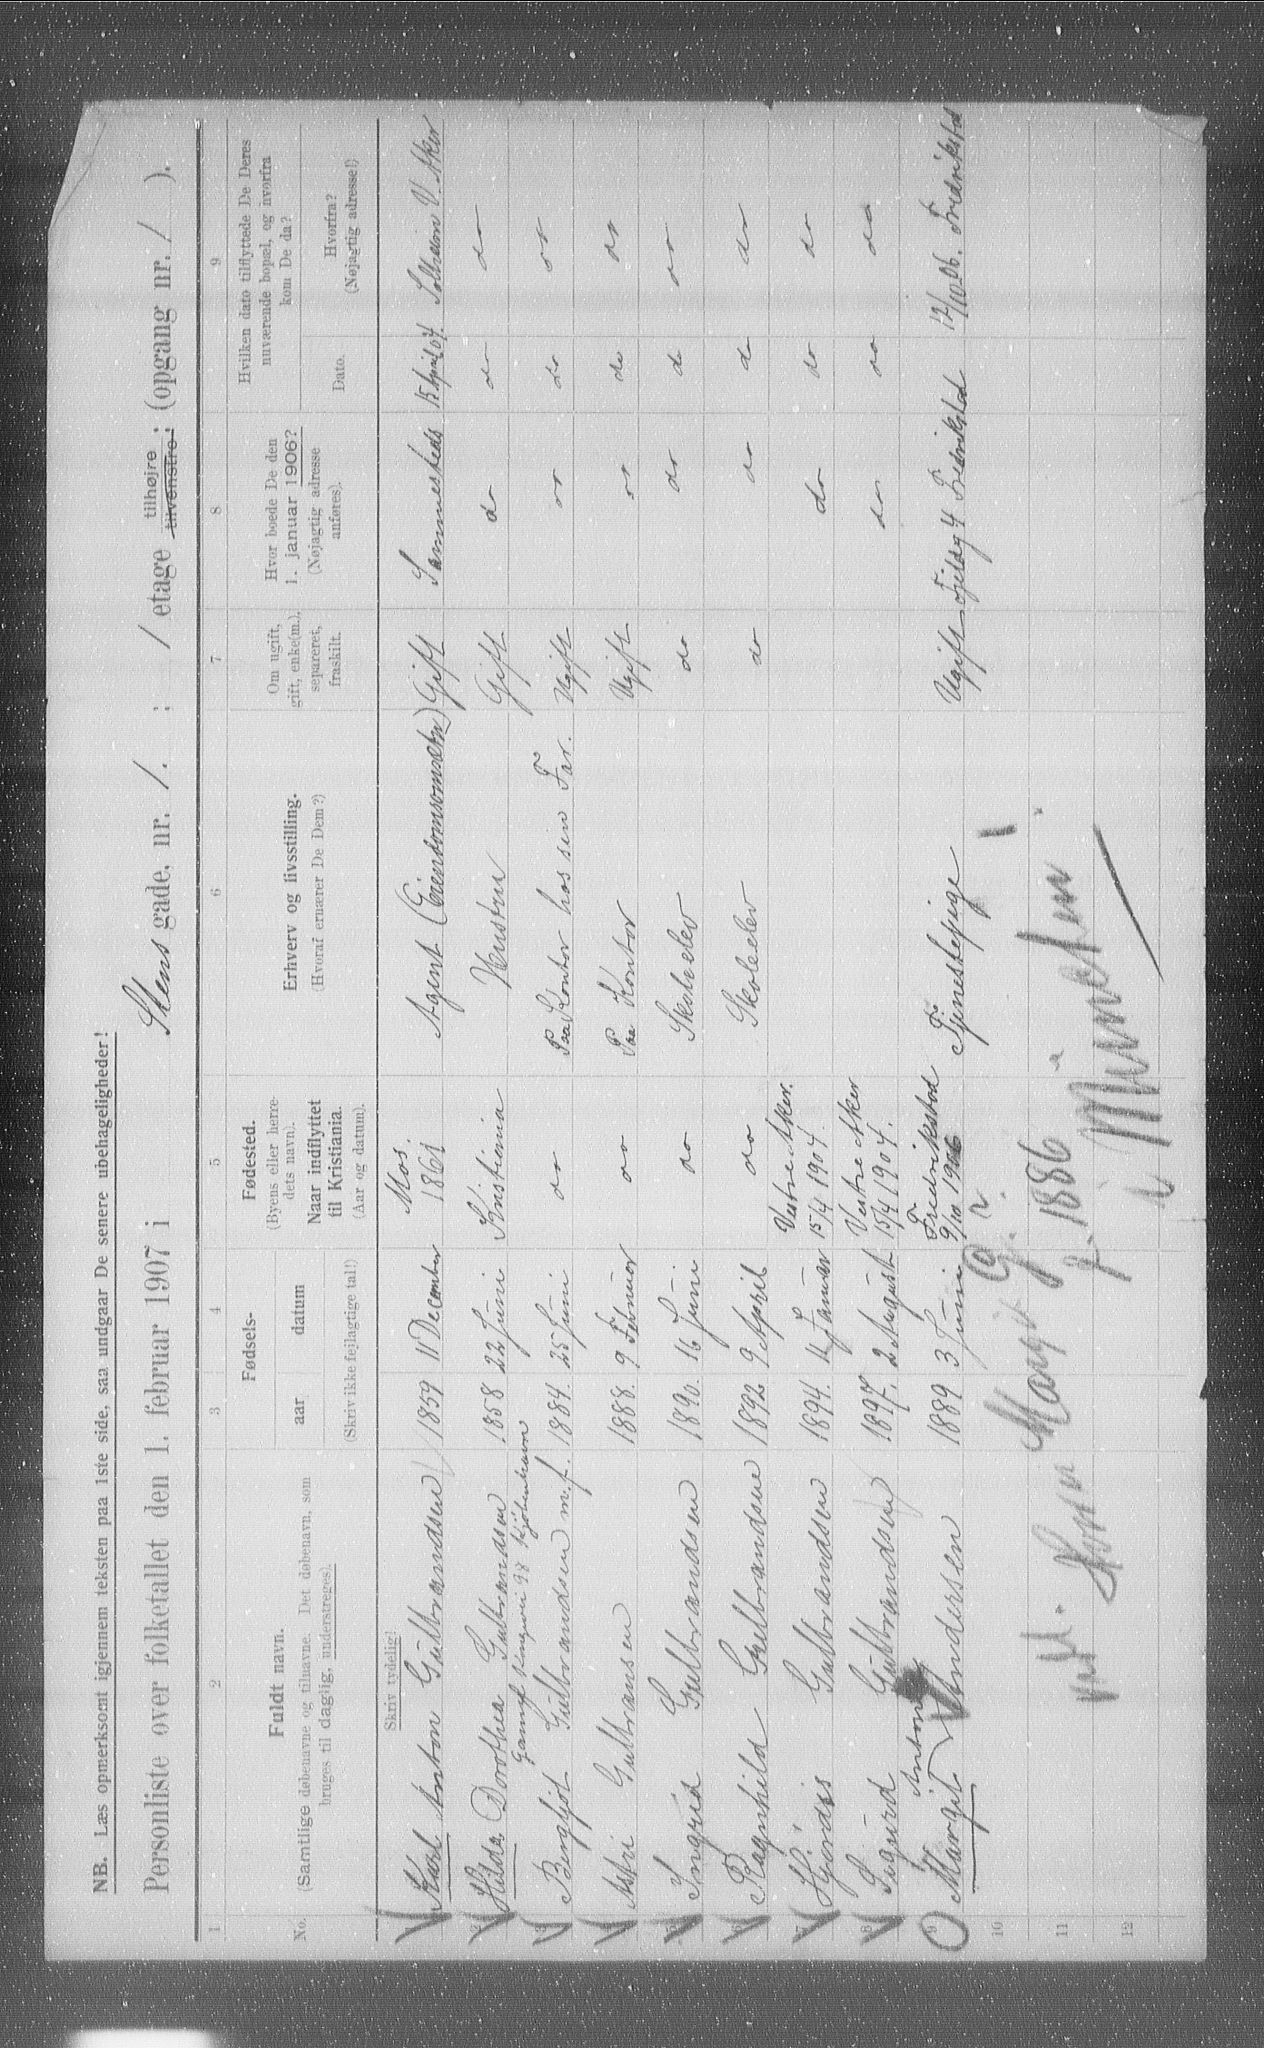 NB. Læs opmerksomt igjennem teksten paa 1ste side, saa undgaar De senere ubehageligheder!
Personliste over folketallet den 1. februar 1907 i Stens gade, nr. 1. ; 1 etage tilhøjre tilvenstre; (opgang nr. 1 ).
1 2 3 4 5 6 7 8 9
No.
Fuldt navn.
(Samtlige døbenavne og tilnavne. Det døbenavn, som
bruges til daglig, understreges).
Fødsels-
aar datum
(Skriv ikke fejlagtige tal!)
Fødested.
(Byens eller herre-
dets navn).
Naar indflyttet
til Kristiania.
(Aar og datum).
Erhverv og livsstilling.
(Hvoraf ernærer De Dem?)
Om ugift,
gift, enke(m.),
separeret,
fraskilt.
Hvor boede De den
1. januar 1906?
(Nøjagtig adresse
anføres).
Hvilken dato tilflyttede De Deres
nuværende bopæl, og hvorfra
kom De da?
Dato.
Hvorfra?
(Nøjagtig adresse!)
Skriv tydelig!
Karl Anton Gulbrandsen 1859 11 December Mos. 1861 Agent (Eiendomsomsætn) Gift Sammesteds 15 April 04. Solheim V. Aker
2 Hilda Dorothea Gulbrandsen 1858 22 Juni Kristiania Hustru Gift do do do
Kjøbenhavn
3 Bergljot Gulbrandsen m.f. 1884. 25 Juni do Paa Kontor hos sin Far. Ugift do do do
4 Astri Gulbransen 1888. 9 Februar do Paa Kontor Ugift do do do
5 Ingrid Gulbrandsen 1890. 16 Juni do Skoleelev do do do do
6 Ragnhild Gulbrandsen 1892 9 April do Skoleelev do do do do
7 Hjördis Gulbrandsen 1894. 4 Januar Vestre Aker. 15/4 1904. do do do
8 Sigurd Gulbrandsen 1897. 2 August Vestre Aker 15/4 1904. do do do
9 Margit Antonie Andersen 1889 3 Juni Fredrikstad 9/10 1906 Tjenestepige Ugift Fredrikstad 12/10 06. Fredrikstad
10
11
12
f. 1886